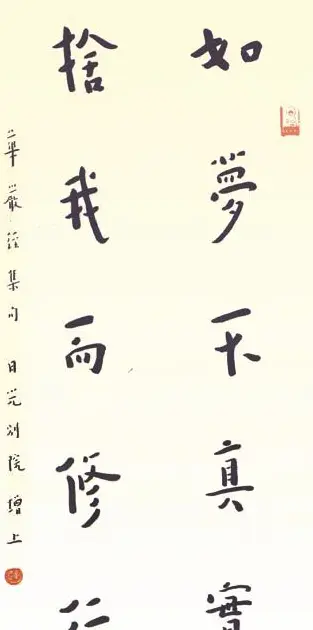 如夢不真實
捨我而修行
華嚴經集句 月光別院 增上